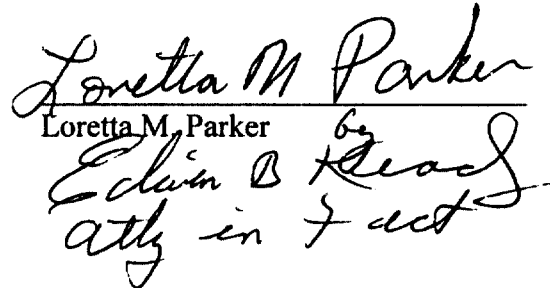 Loretta M Parker
Loretta M. Parker by
Edwin B Read
atty in Fact